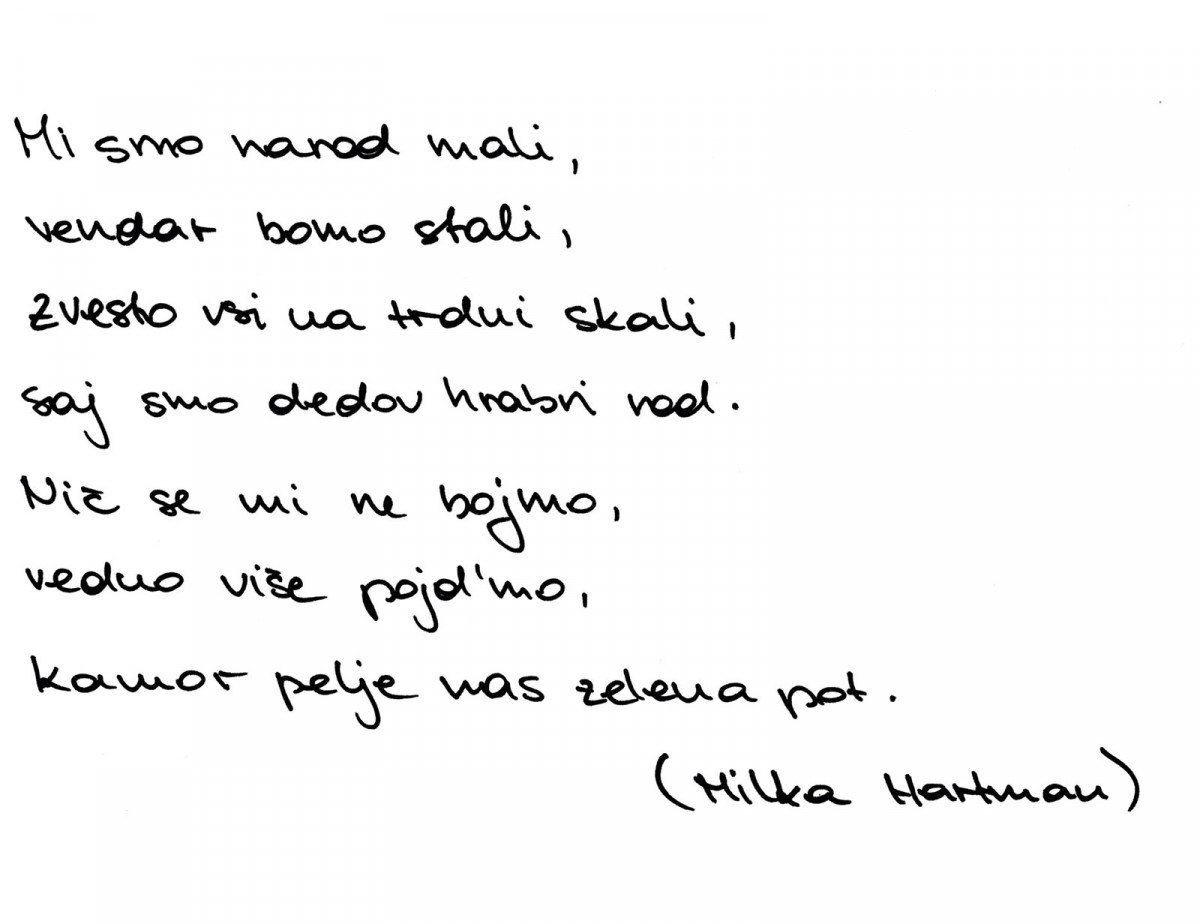 Mi smo narod mali,
vendar bomo stali,
zvesto vsi na trdni skali,
saj smo dedov hrabri rod.
Nič se mi ne bojmo,
vedno više pojd'mo,
kamor pelje nas zelena pot.
(Milka Hartman)